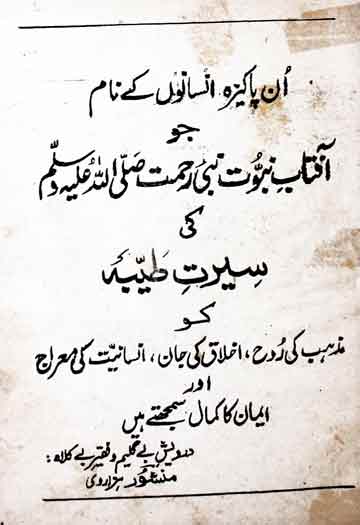 اُن پاکیزہ انسانوں کے نام
جو
آفتابِ نبوّت نبیِ رحمت صَلّی اللہُ علیہ وسلّم
کی
سیرتِ طیّبہ
کو
مذہب کی رُوح، اخلاق کی جان، انسانیت کی معراج
اور
ایمان کا کمال سمجھتے ہیں
درویشِ بے گلیم و فقیرِ بے کلاہ:
منظور ہزاروی